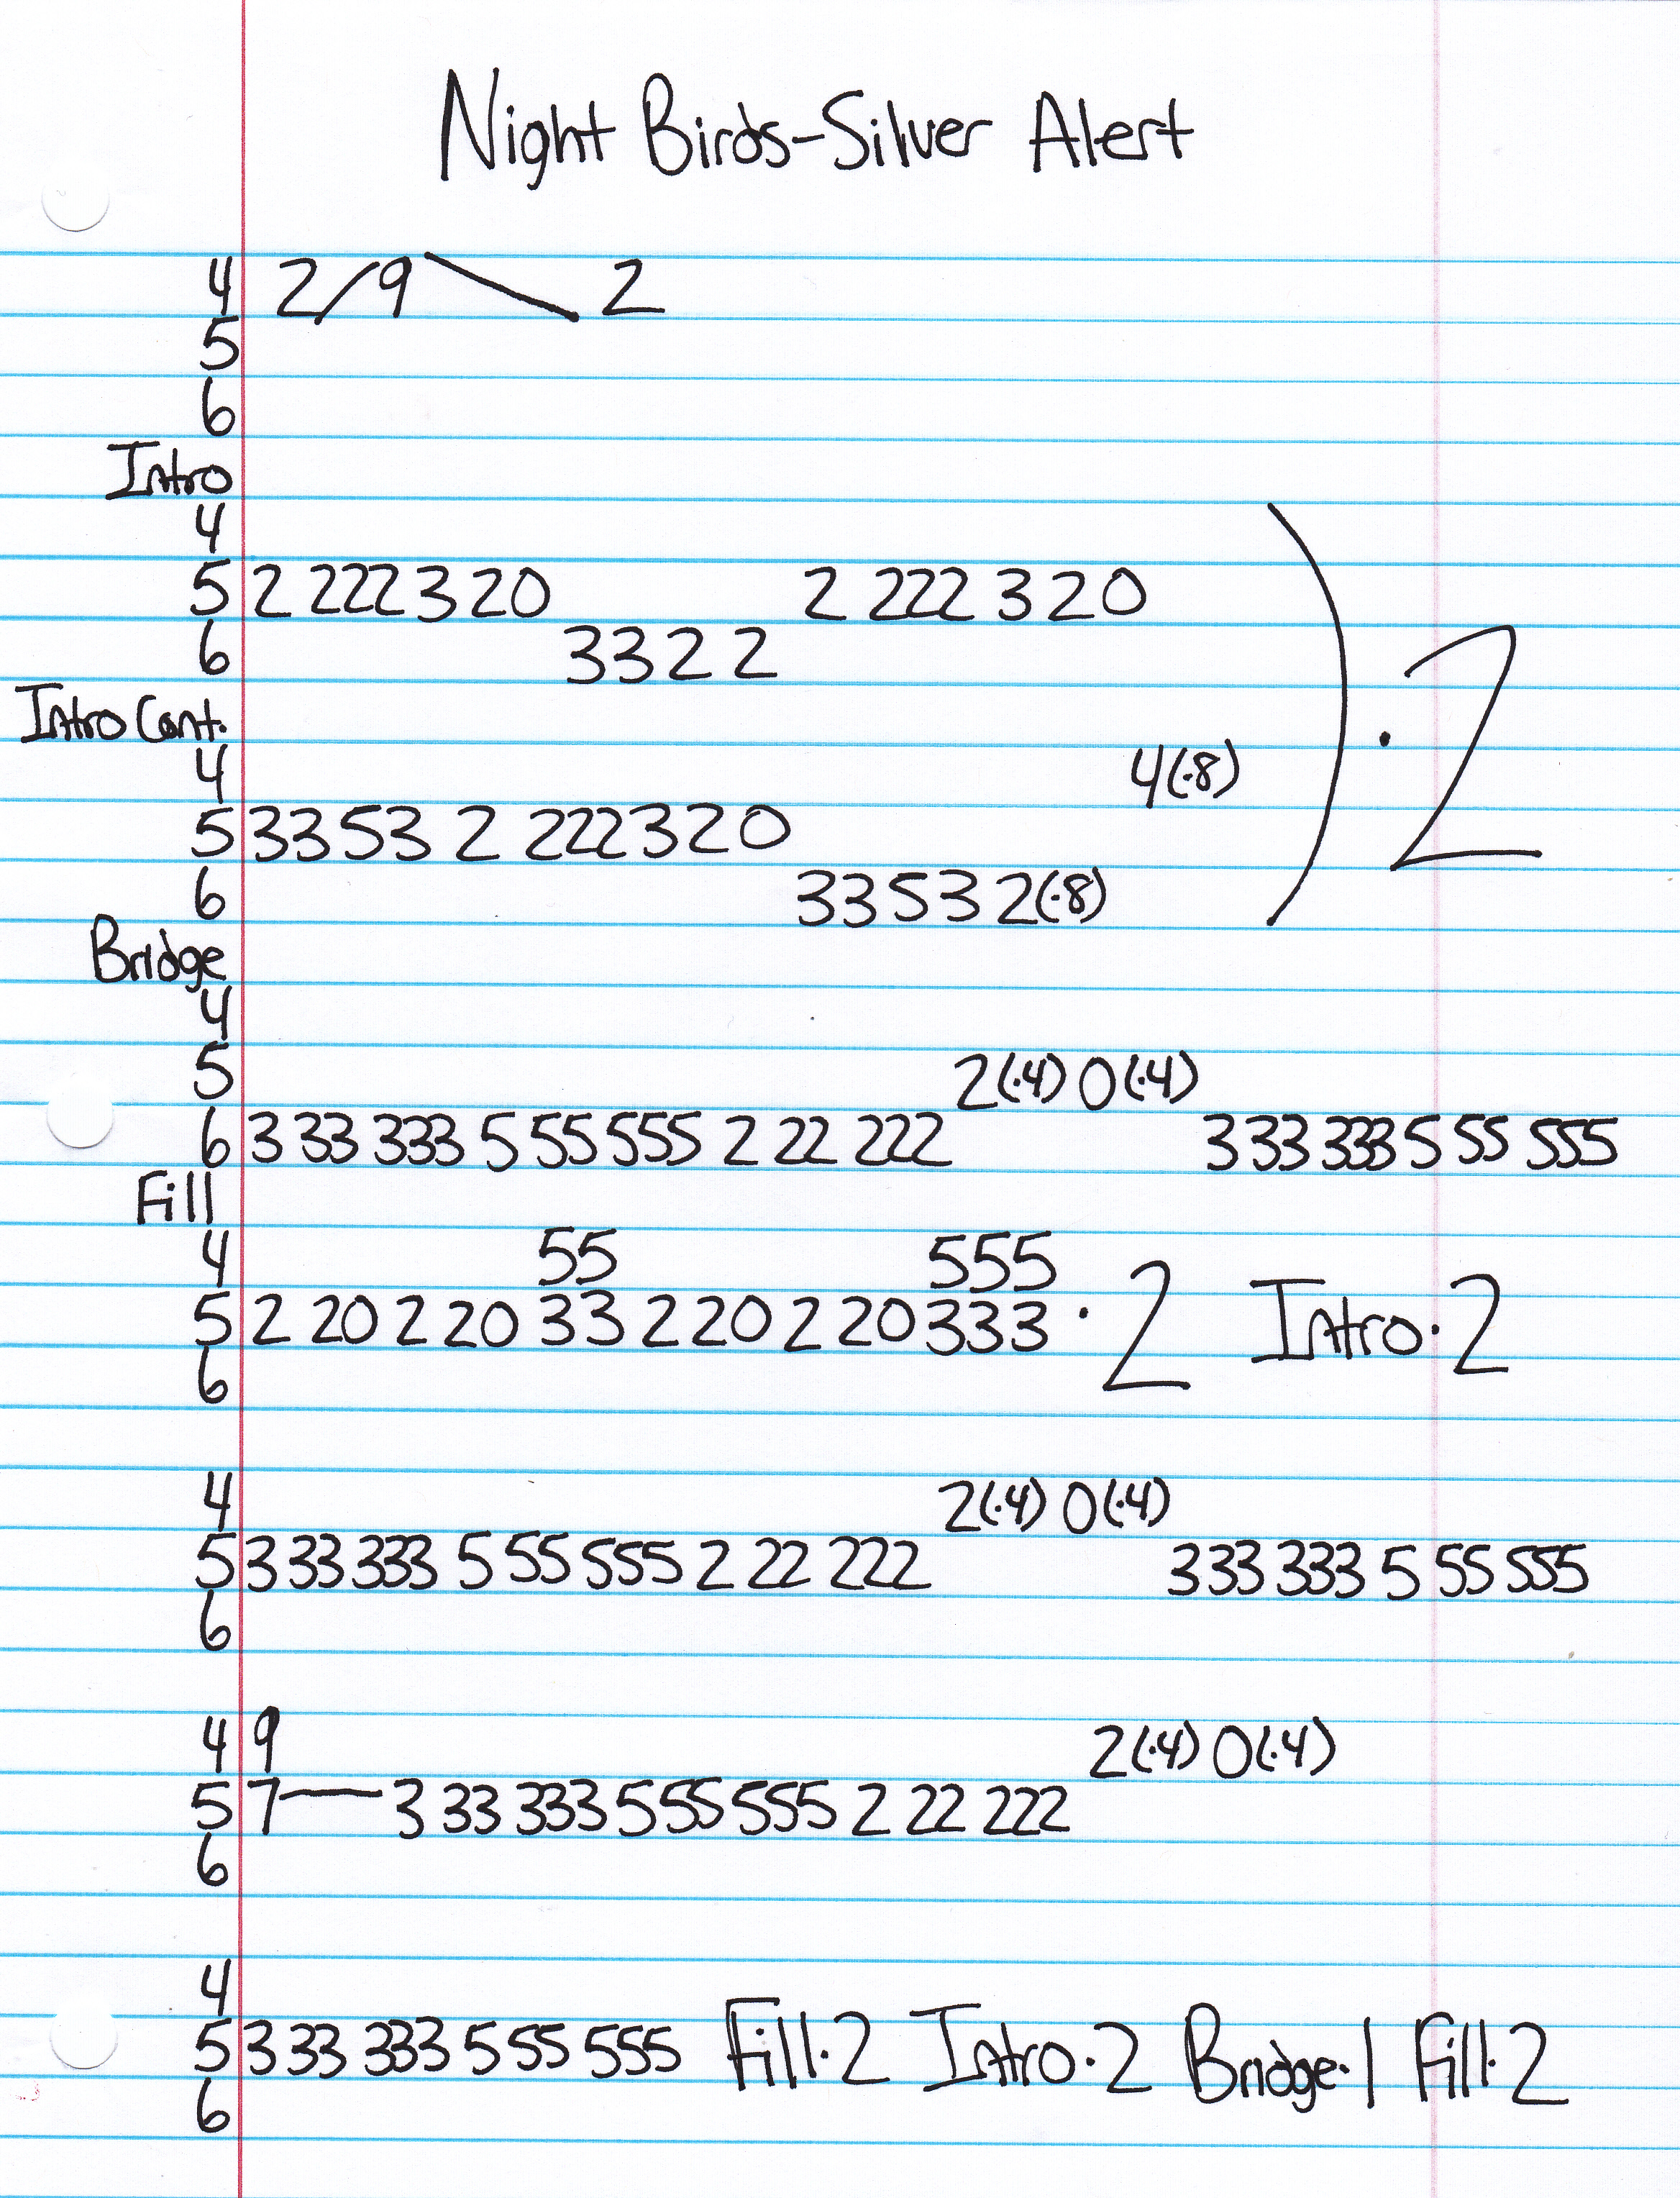 Night Birds-Silver Alert
4 2/9\2
5
6
Intro
4
5 2 222 3 20 2 222 3 20
6 3322
Intro Cont.
4 4(·8)
5 3353 2 222320
6 33532(·8)
) · 2
Bridge
4
5 2(·4) 0(·4)
6 3 33 333 5 55 555 2 22 222 3 33 333 5 55 555
Fill
4 55 555
5 2 20 2 20 33 2 20 2 20 333 · 2 Intro · 2
6
4 2(·4) 0(·4)
5 3 33 333 5 55 555 2 22 222 3 33 333 5 55 555
6
4 9 2(·4) 0(·4)
5 7— 3 33 333 5 55 555 2 22 222
6
4
5 3 33 333 5 55 555 Fill·2 Intro·2 Bridge·1 Fill·2
6